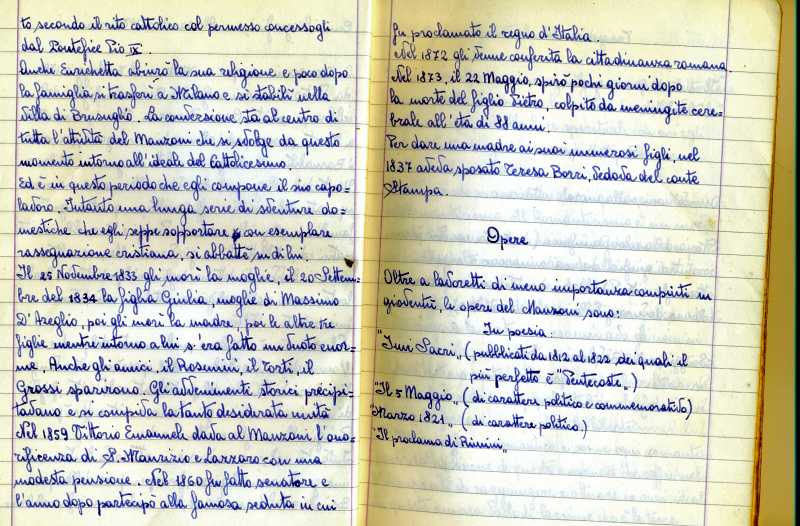 to, secondo il rito cattolico col permesso concessogli
dal Pontefice Pio IX.
Anche Enrichetta abiurò la sua religione e poco dopo
la famiglia si trasferì a Milano e si stabilì nella
Villa di Brusuglio. La conversione sta al centro di
tutta l'attività del Manzoni che si svolge da questo
momento intorno all'ideale del Cattolicesimo.
Ed è in questo periodo che egli compone il suo capo=
lavoro. Intanto una lunga serie di sventure do=
mestiche che egli seppe sopportare con esemplare
rassegnazione cristiana, si abbatté su di lui.
Il 25 Novembre 1833 gli morì la moglie, il 20 Settem=
bre del 1834 la figlia Giulia, moglie di Massimo
D'Azeglio, poi gli morì la madre, poi le altre tre
figlie mentre intorno a lui s'era fatto un vuoto enor=
me. Anche gli amici, il Rosmini, il Torti, il
Grossi sparirono. Gli avvenimenti storici precipi=
tavano e si compiva la tanto desiderata unità
Nel 1859 Vittorio Emanuele dava al Manzoni l'ono=
rificenza di S. Maurizio e Lazzaro con una
modesta pensione. Nel 1860 fu fatto senatore e
l'anno dopo partecipò alla famosa seduta in cui
fu proclamato il regno d'Italia.
Nel 1872 gli venne conferita la cittadinanza romana.
Nel 1873, il 22 Maggio, spirò pochi giorni dopo
la morte del figlio Pietro, colpito da meningite cere=
brale all'età di 88 anni.
Per dare una madre ai suoi numerosi figli, nel
1837 aveva sposato Teresa Borri, vedova del conte
Stampa.
Opere
Oltre a lavoretti di meno importanza compiuti in
gioventù, le opere del Manzoni sono:
In poesia.
"Inni Sacri" (pubblicati da 1812 al 1822 dei quali il
più perfetto è "Pentecoste")
"Il 5 Maggio" (di carattere politico e commemorativo)
"Marzo 1821" (di carattere politico)
"Il proclama di Rimini"